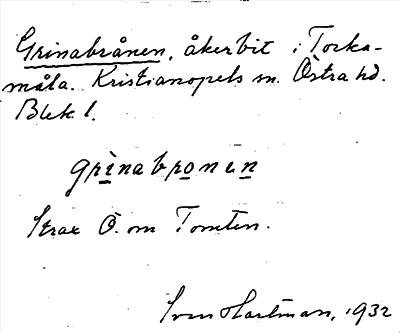 Grinabrånen, åkerbit i Torka-
måla. Kristianopels sn. Östra hd.
Blek l.
grìnabronen
Strax Ö. om Tomten.
Sven Hartman, 1932